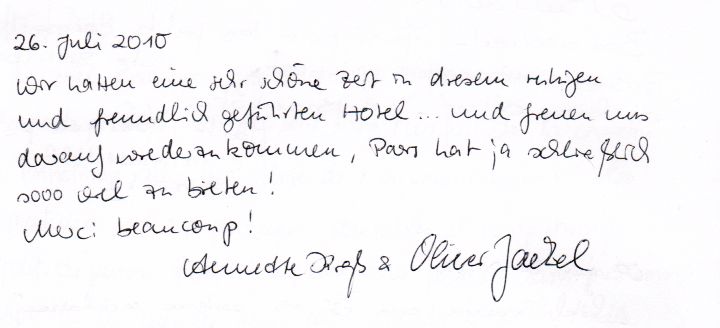 26. Juli 2010
Wir hatten eine sehr schöne Zeit in diesem ruhigen
und freundlich geführten Hotel... und freuen uns
darauf wiederzukommen, Paris hat ja schließlich
sooo viel zu bieten!
Merci beaucoup!
& Oliver Jaekel